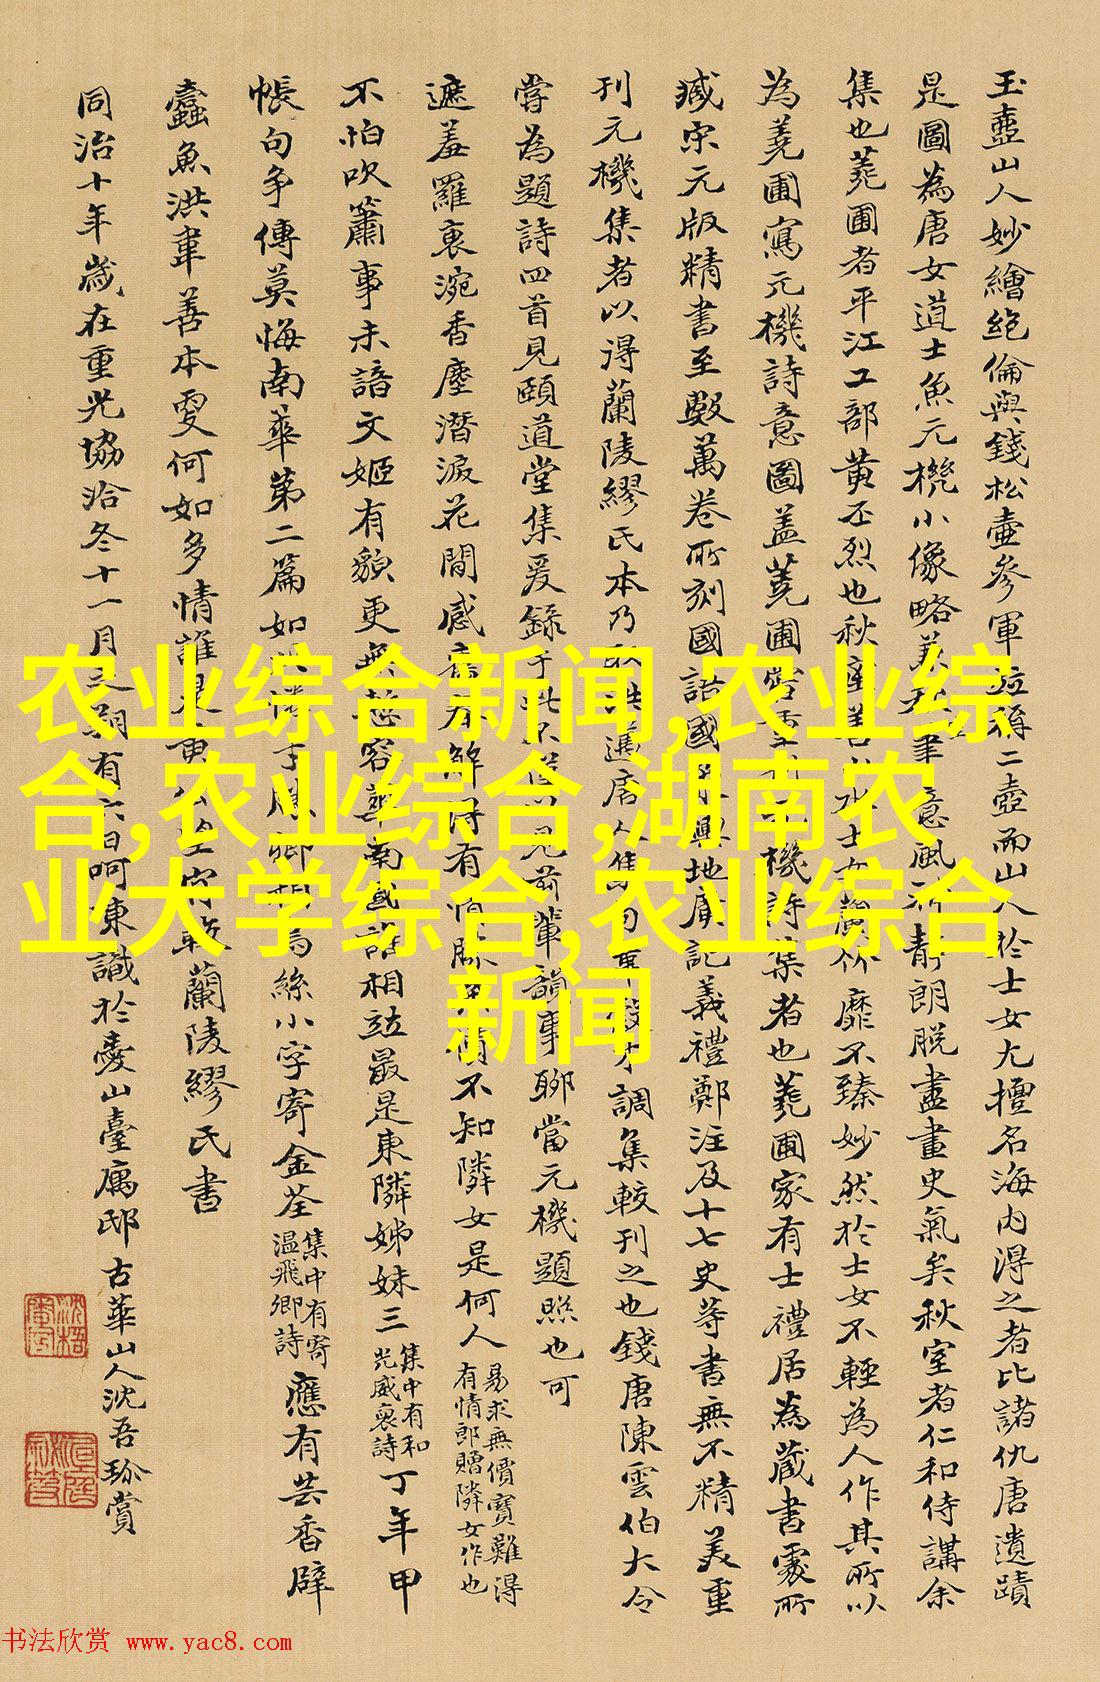 玉壺山人妙繪絕倫與錢松壺參軍竝稱二壺而山人於士女尤擅名海内得之者比諸仇唐遺蹟
是圖為唐女道士魚元機小像略義筆意風神静朗脱盡畫史氣矣秋室者仁和侍講余
集也蕘圃者平江工部黄丕烈也秋室士女不臻妙然於士女不輕為人作其所以
為蕘圃寫元機詩意圖盖蕘圃嘗重機詩集者也蕘圃家有士禮居為藏書處所
臧宋元版精書至數萬卷所刻國語國輿地廣記義禮鄭注及十七史等書無不精美重
刊元機集者以得蘭陵繆氏本乃唐人集才調集較刊之也錢唐陳雲伯大令
嘗為題詩四首見頤道堂集爰錄於此以見前輩韻事聊當元機題照也可
遮羞羅裏涴香塵潛淚花間感舊春解得有情不知隣女是何人易求無價寶難得有情郎贈隣女作也
不怕吹簫事未諳文姬有貌更無慙容華南國誰相竝最是東隣姊妹三集中有和光威裒詩丁年甲
帳句争傳莫悔南華第二篇如烏絲小字寄金荃集中有寄温飛卿詩應有芸香辟
蠹魚洪韋善本更何如多情誰是黄蘭陵繆氏書
同治十年歲在重光協洽冬十一月有六日呵凍識於臺山臺寓邸古華山人沈吾珎賞
农业综合新闻,农业综
合,农业综合,湖南农
业大学综合,农业综合
新闻
书法欣赏 www.yac8.com